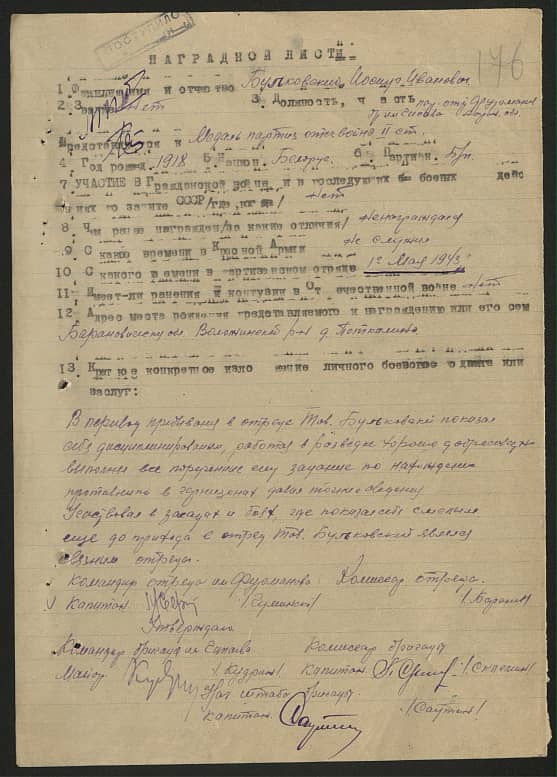 176
НАГРАДНОЙ ЛИСТ
1 Фамилия имя и отчество Бульковский Иосиф Иванович
2 Звание Нет 3 Должность, часть
Представляется к Медаль партиз. отеч. войны II ст.
4 Год рожд. 1918 5 Национ. Белорус 6 Партийн. б/п.
7 УЧАСТИЕ в Гражданской войне и в последующих боевых дейс
виях по защите СССР/где, когда/ Нет
8 Чем ранее награжден/за какие отличия/ Ненаграждался
9 С какого времени в Красной Армии Не служил
10 С какого времени в партизанском отряде 1 Мая 1943
11 Имеет-ли ранения и контузии в Отечественной войне Нет
12 Адрес места рождения представляемого к награждению или его сем
Барановическую обл. Воложинский р-н д.
13 Краткое конкретное изложение личного боевого подвига или
заслуг:
В период пребывания в отряде Тов. Бульковский показал
себя дисциплинированым, работая в разведке хорошо
выполнял все порученные ему задание по нахождению
противника в гарнизонах давая точные сведения
Участвовал в засадах и боях, где показал себя смелым
еще до прихода в отряд Тов. Бульковский являлся
связным отряда.
Командир отряда им Фурманова: Комиссар отряда.
Капитан /Сумински/
Утверждаю
Командир бригады им Чапаева Комиссар бригады
Майор /Кудрин/ Капитан
Нач штаба бригады
Капитан /Саутин/